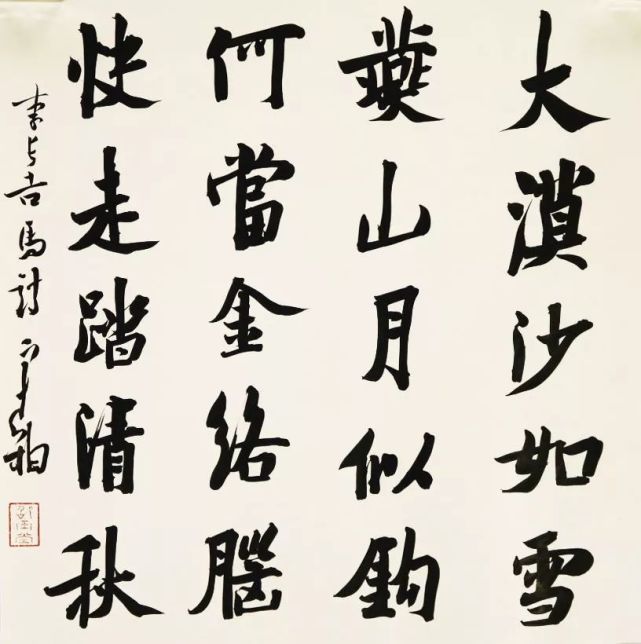 大漠沙如雪
燕山月似鉤
何當金絡腦
快走踏清秋
李長吉馬詩